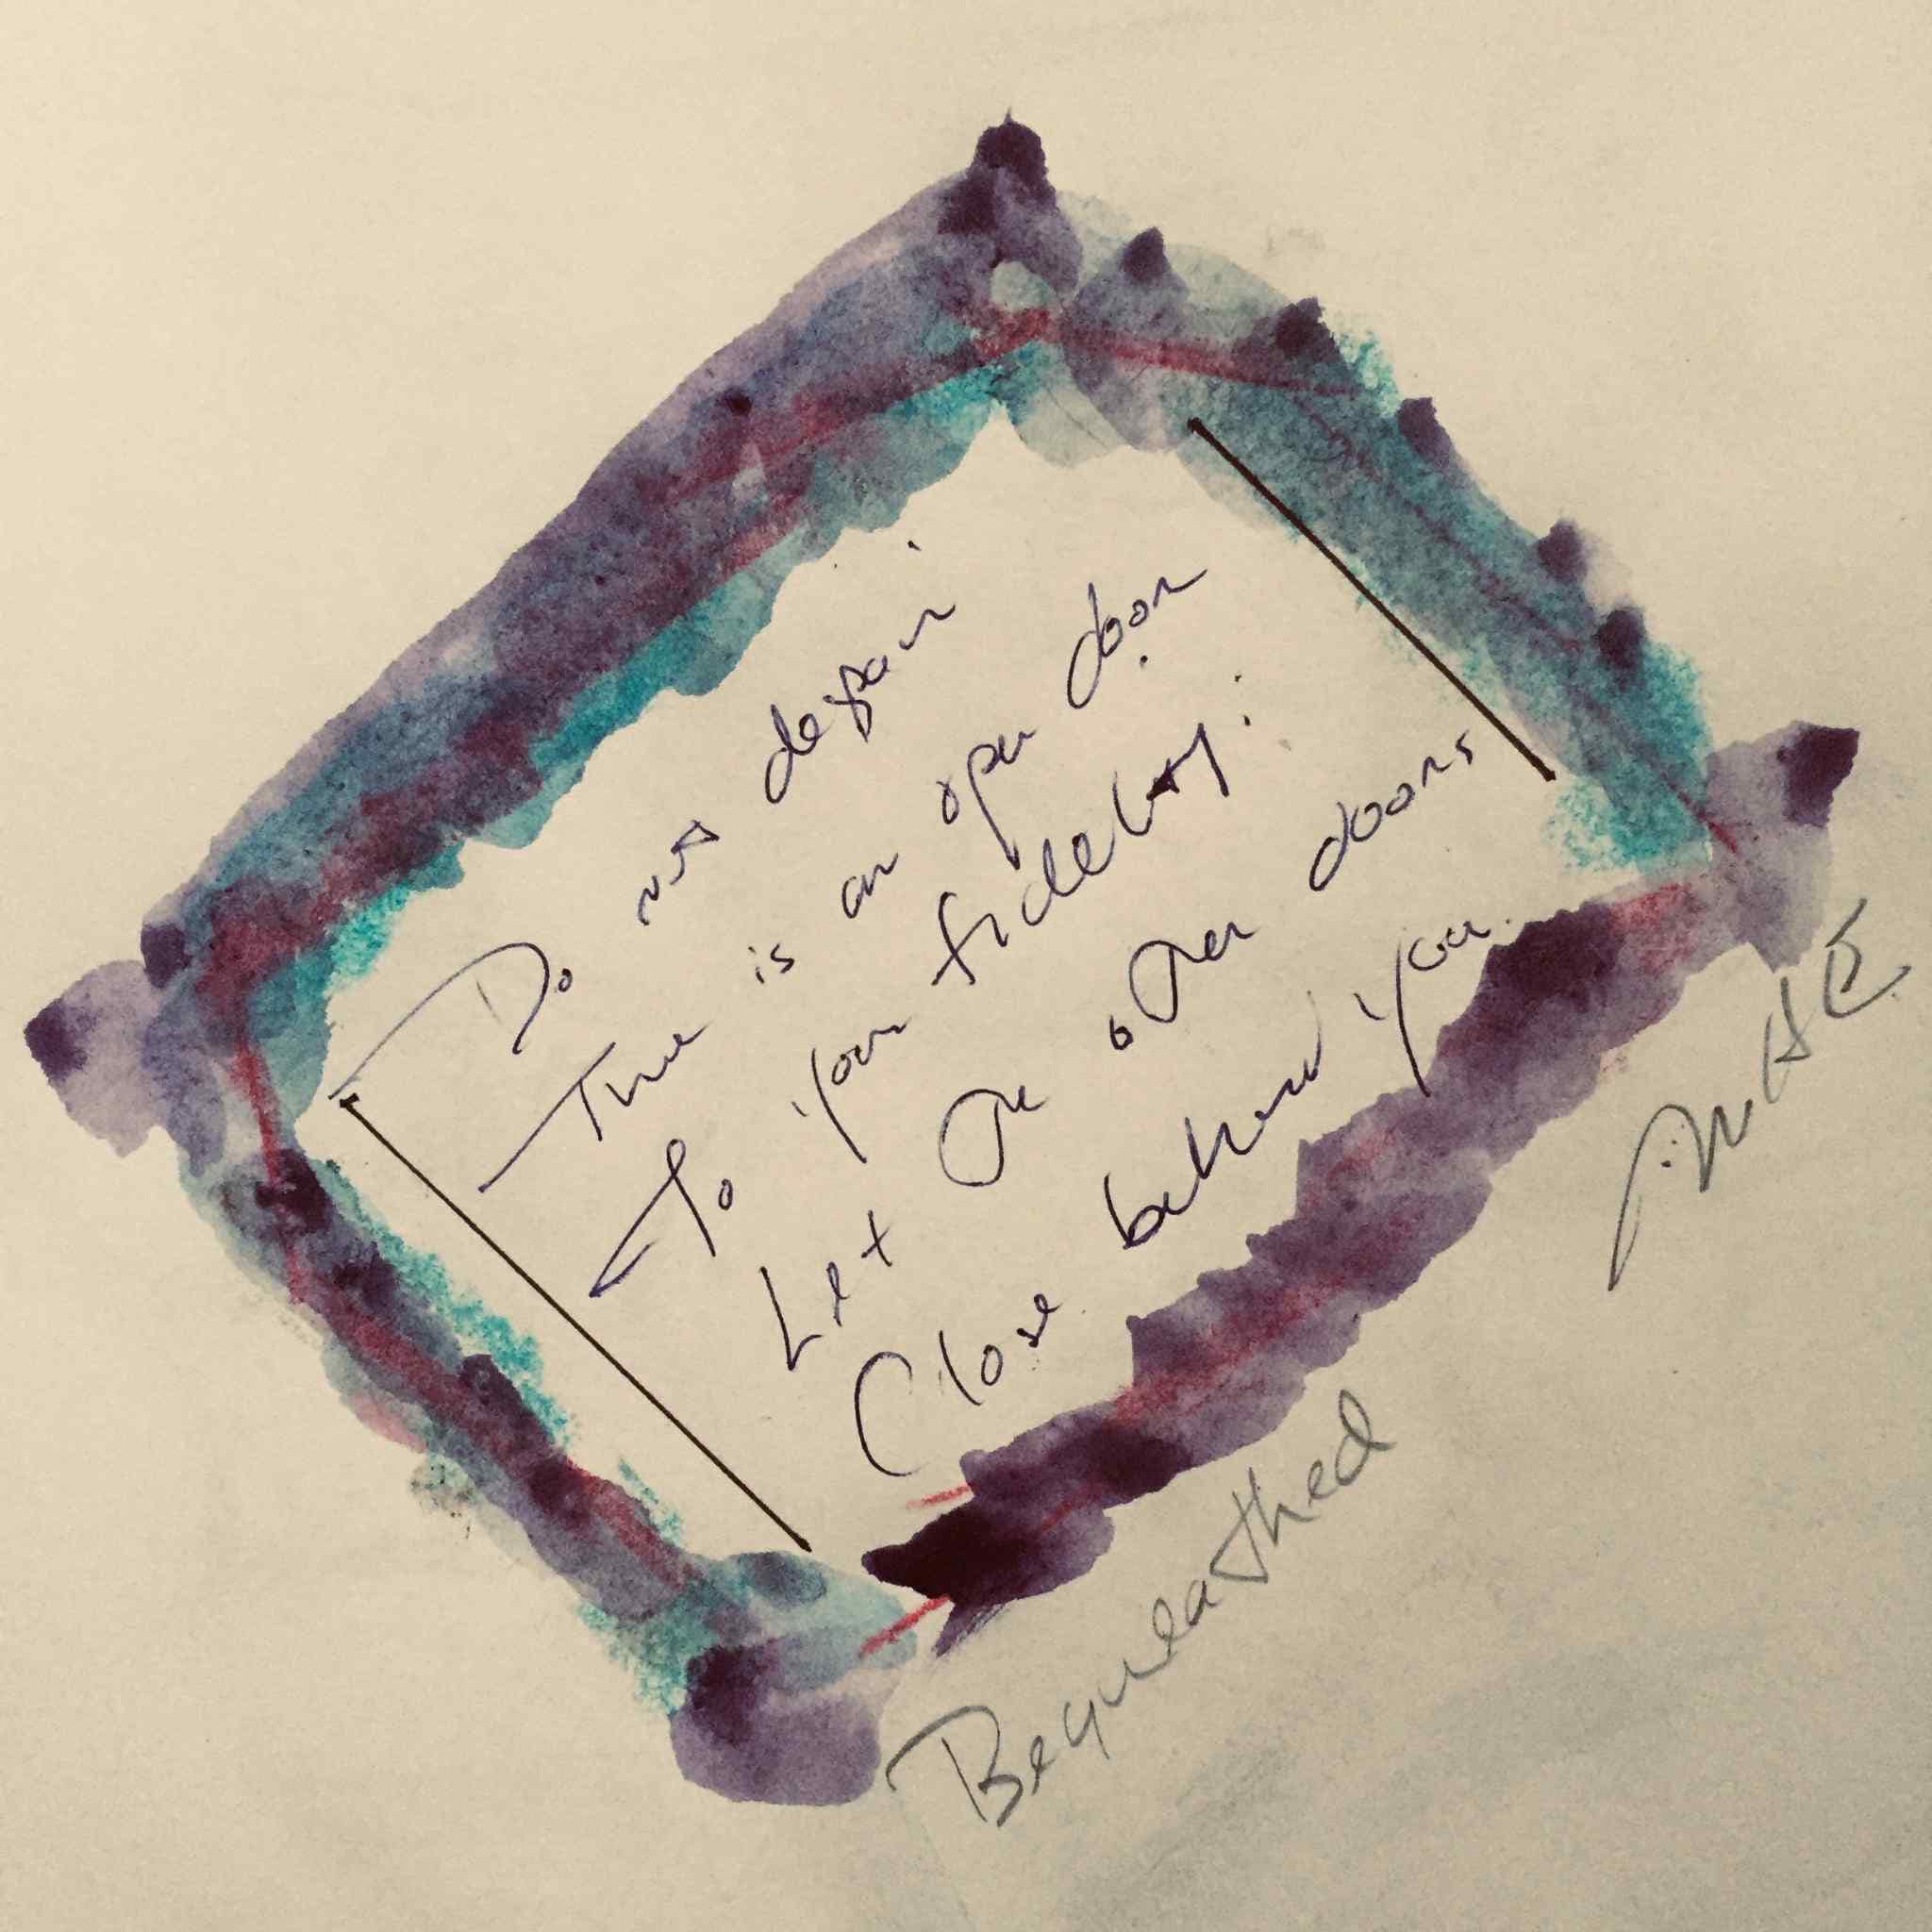 Do not despair
There is an open door
To your fidelity:
Let the other doors
Close behind you.
Bequeathed